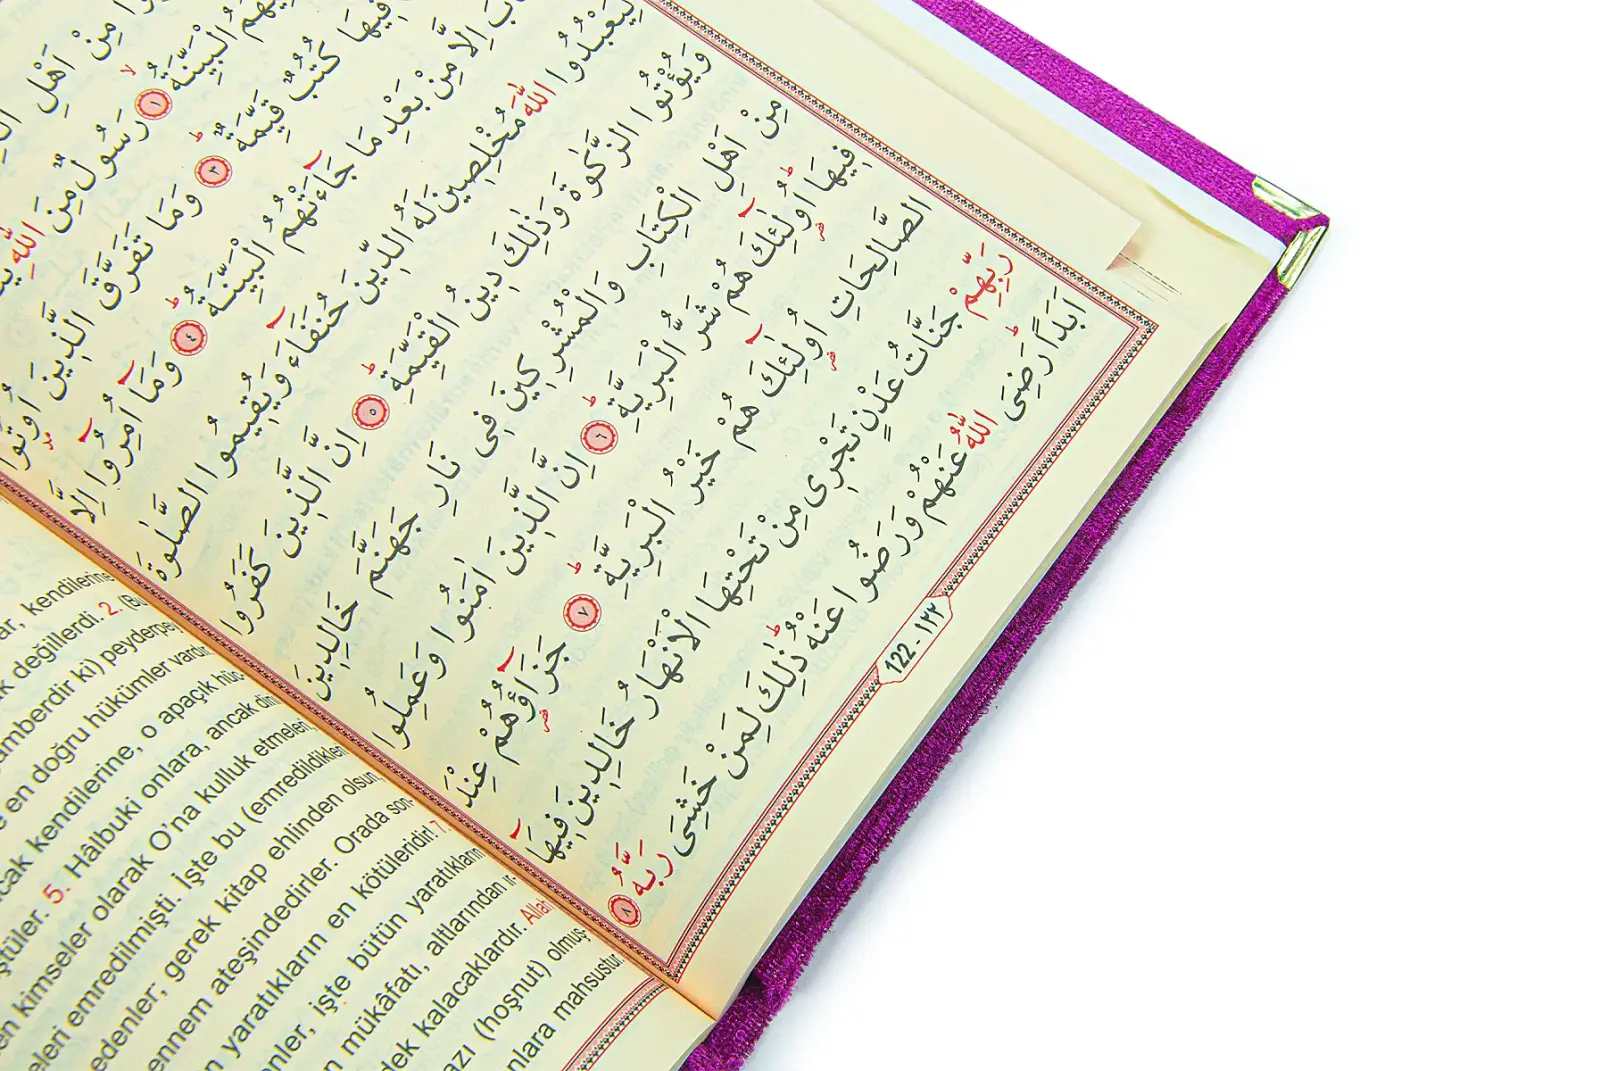 مِنْ اَهْلِ
الْبَيِّنَةُ ١ رَسُولٌ مِنَ اللّٰهِ
فِيهَا كُتُبٌ قَيِّمَةٌ ٣ وَمَا تَفَرَّقَ الَّذِينَ اُوتُوا
اِلَّا مِنْ بَعْدِ مَا جَاءَتْهُمُ الْبَيِّنَةُ ٤ وَمَا اُمِرُوا اِلَّا
لِيَعْبُدُوا اللّٰهَ مُخْلِصِينَ لَهُ الدِّينَ حُنَفَاءَ وَيُقِيمُوا الصَّلٰوةَ
وَيُؤْتُوا الزَّكٰوةَ وَذٰلِكَ دِينُ الْقَيِّمَةِ ٥ اِنَّ الَّذِينَ كَفَرُوا
مِنْ اَهْلِ الْكِتَابِ وَالْمُشْرِكِينَ فِى نَارِ جَهَنَّمَ خَالِدِينَ
فِيهَا اُولٰئِكَ هُمْ شَرُّ الْبَرِيَّةِ ٦ اِنَّ الَّذِينَ اٰمَنُوا وَعَمِلُوا
الصَّالِحَاتِ اُولٰئِكَ هُمْ خَيْرُ الْبَرِيَّةِ ٧ جَزَاؤُهُمْ عِنْدَ
رَبِّهِمْ جَنَّاتُ عَدْنٍ تَجْرِى مِنْ تَحْتِهَا الْاَنْهَارُ خَالِدِينَ فِيهَا
اَبَدًا رَضِىَ اللّٰهُ عَنْهُمْ وَرَضُوا عَنْهُ ذٰلِكَ لِمَنْ خَشِىَ رَبَّهُ ٨
122 - ١٢٢
kendilerine
değillerdi. 2. (Bu
ki) peyderpey
en doğru hükümler vardır.
kendilerine, o apaçık
5. Hâlbuki onlara, ancak din
kimseler olarak O'na kulluk etmeleri,
emredilmişti. İşte bu (emredildikleri
gerek kitap ehlinden olsun,
ateşindedirler. Orada son-
yaratıkların en kötüleridir! 7.
işte bütün yaratıkların
mükâfatı, altlarından ır-
kalacaklardır. Allah
(hoşnut) olmuş-
mahsustur.